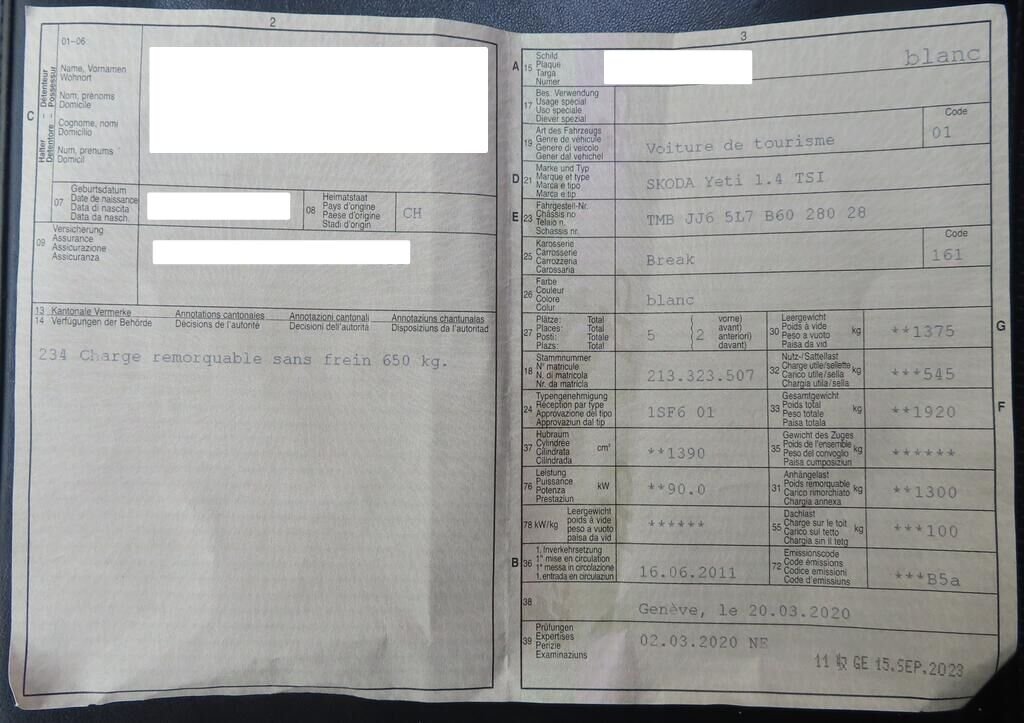 2
01-06
Halter - Détenteur
Detentore - Possessur
C
Name, Vornamen
Wohnort
Nom, prénoms
Domicile
Cognome, nomi
Domicilio
Num, prenums
Domicil
07
Geburtsdatum
Date de naissance
Data di nascita
Data da nasch.
08
Heimatstaat
Pays d'origine
Paese d'origine
Stadi d'origin
CH
09
Versicherung
Assurance
Assicurazione
Assicuranza
13 Kantonale Vermerke Annotations cantonales Annotazioni cantonali Annotaziuns chantunalas
14 Verfügungen der Behörde Décisions de l'autorité Decisioni dell'autorità Disposiziuns da l'autoritad
234 Charge remorquable sans frein 650 kg.
3
A 15
Schild
Plaque
Targa
Numer
blanc
17
Bes. Verwendung
Usage spécial
Uso speciale
Diever spezial
19
Art des Fahrzeugs
Genre de véhicule
Genere di veicolo
Gener dal vehichel
Voiture de tourisme
Code
01
D 21
Marke und Typ
Marque et type
Marca e tipo
Marca e tip
SKODA Yeti 1.4 TSI
E 23
Fahrgestell-Nr.
Châssis no
Telaio n.
Schassis nr.
TMB JJ6 5L7 B60 280 28
25
Karosserie
Carrosserie
Carrozzeria
Carossaria
Break
Code
161
26
Farbe
Couleur
Colore
Colur
blanc
27
Plätze: Total
Places: Total
Posti: Totale
Plazs: Total
5 ( 2
vorne)
avant)
anteriori)
davant)
30
Leergewicht
Poids à vide
Peso a vuoto
Paisa da vid
kg
**1375
G
18
Stammnummer
N° matricule
N. di matricola
Nr. da matricla
213.323.507
32
Nutz-/Sattellast
Charge utile/sellette
Carico utile/sella
Chargia utila/sella
kg
***545
24
Typengenehmigung
Réception par type
Approvazione del tipo
Approvaziun dal tip
1SF6 01
33
Gesamtgewicht
Poids total
Peso totale
Paisa totala
kg
**1920
F
37
Hubraum
Cylindrée
Cilindrata
Cilindrada
cm³
**1390
35
Gewicht des Zuges
Poids de l'ensemble
Peso del convoglio
Paisa cumposiziun
kg
******
76
Leistung
Puissance
Potenza
Prestaziun
kW
**90.0
31
Anhängelast
Poids remorquable
Carico rimorchiato
Chargia annexa
kg
**1300
78 kW/kg
Leergewicht
poids à vide
peso a vuoto
paisa da vid
******
55
Dachlast
Charge sur le toit
Carico sul tetto
Chargia sin il tetg
kg
***100
B 36
1. Inverkehrsetzung
1re mise en circulation
1a messa in circolazione
1. entrada en circulaziun
16.06.2011
72
Emissionscode
Code émissions
Codice emissioni
Code d'emissiuns
***B5a
38
Genève, le 20.03.2020
39
Prüfungen
Expertises
Perizie
Examinaziuns
02.03.2020 NE
11 GE 15.SEP.2023